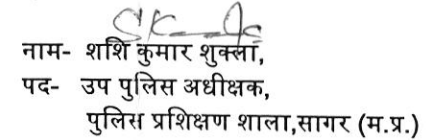 नाम- शशि कुमार शुक्ला,
पद- उप पुलिस अधीक्षक,
पुलिस प्रशिक्षण शाला,सागर (म.प्र.)